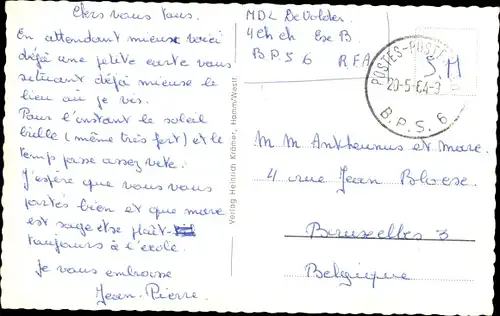 Chers vous tous.
En attendant mieux voici
déjà une petite carte vous
situant déjà mieux le
lieu où je vis.
Pour l'instant le soleil
brille (même très fort) et le
temps passe assez vite.
J'espère que vous vous
portez bien et que marc
est sage et se plait
toujours à l'école.
Je vous embrasse
Jean-Pierre.
Verlag Heinrich Krämer, Hamm/Westf.
MDL De Volder
4 Ch ch Esc B.
BPS 6 RFA
S.M
POSTES-POSTE
20-5-64-9
B.P.S. 6
M M Antheunus et Marc.
4 rue Jean Bloese.
Bruxelles 3
Belgique